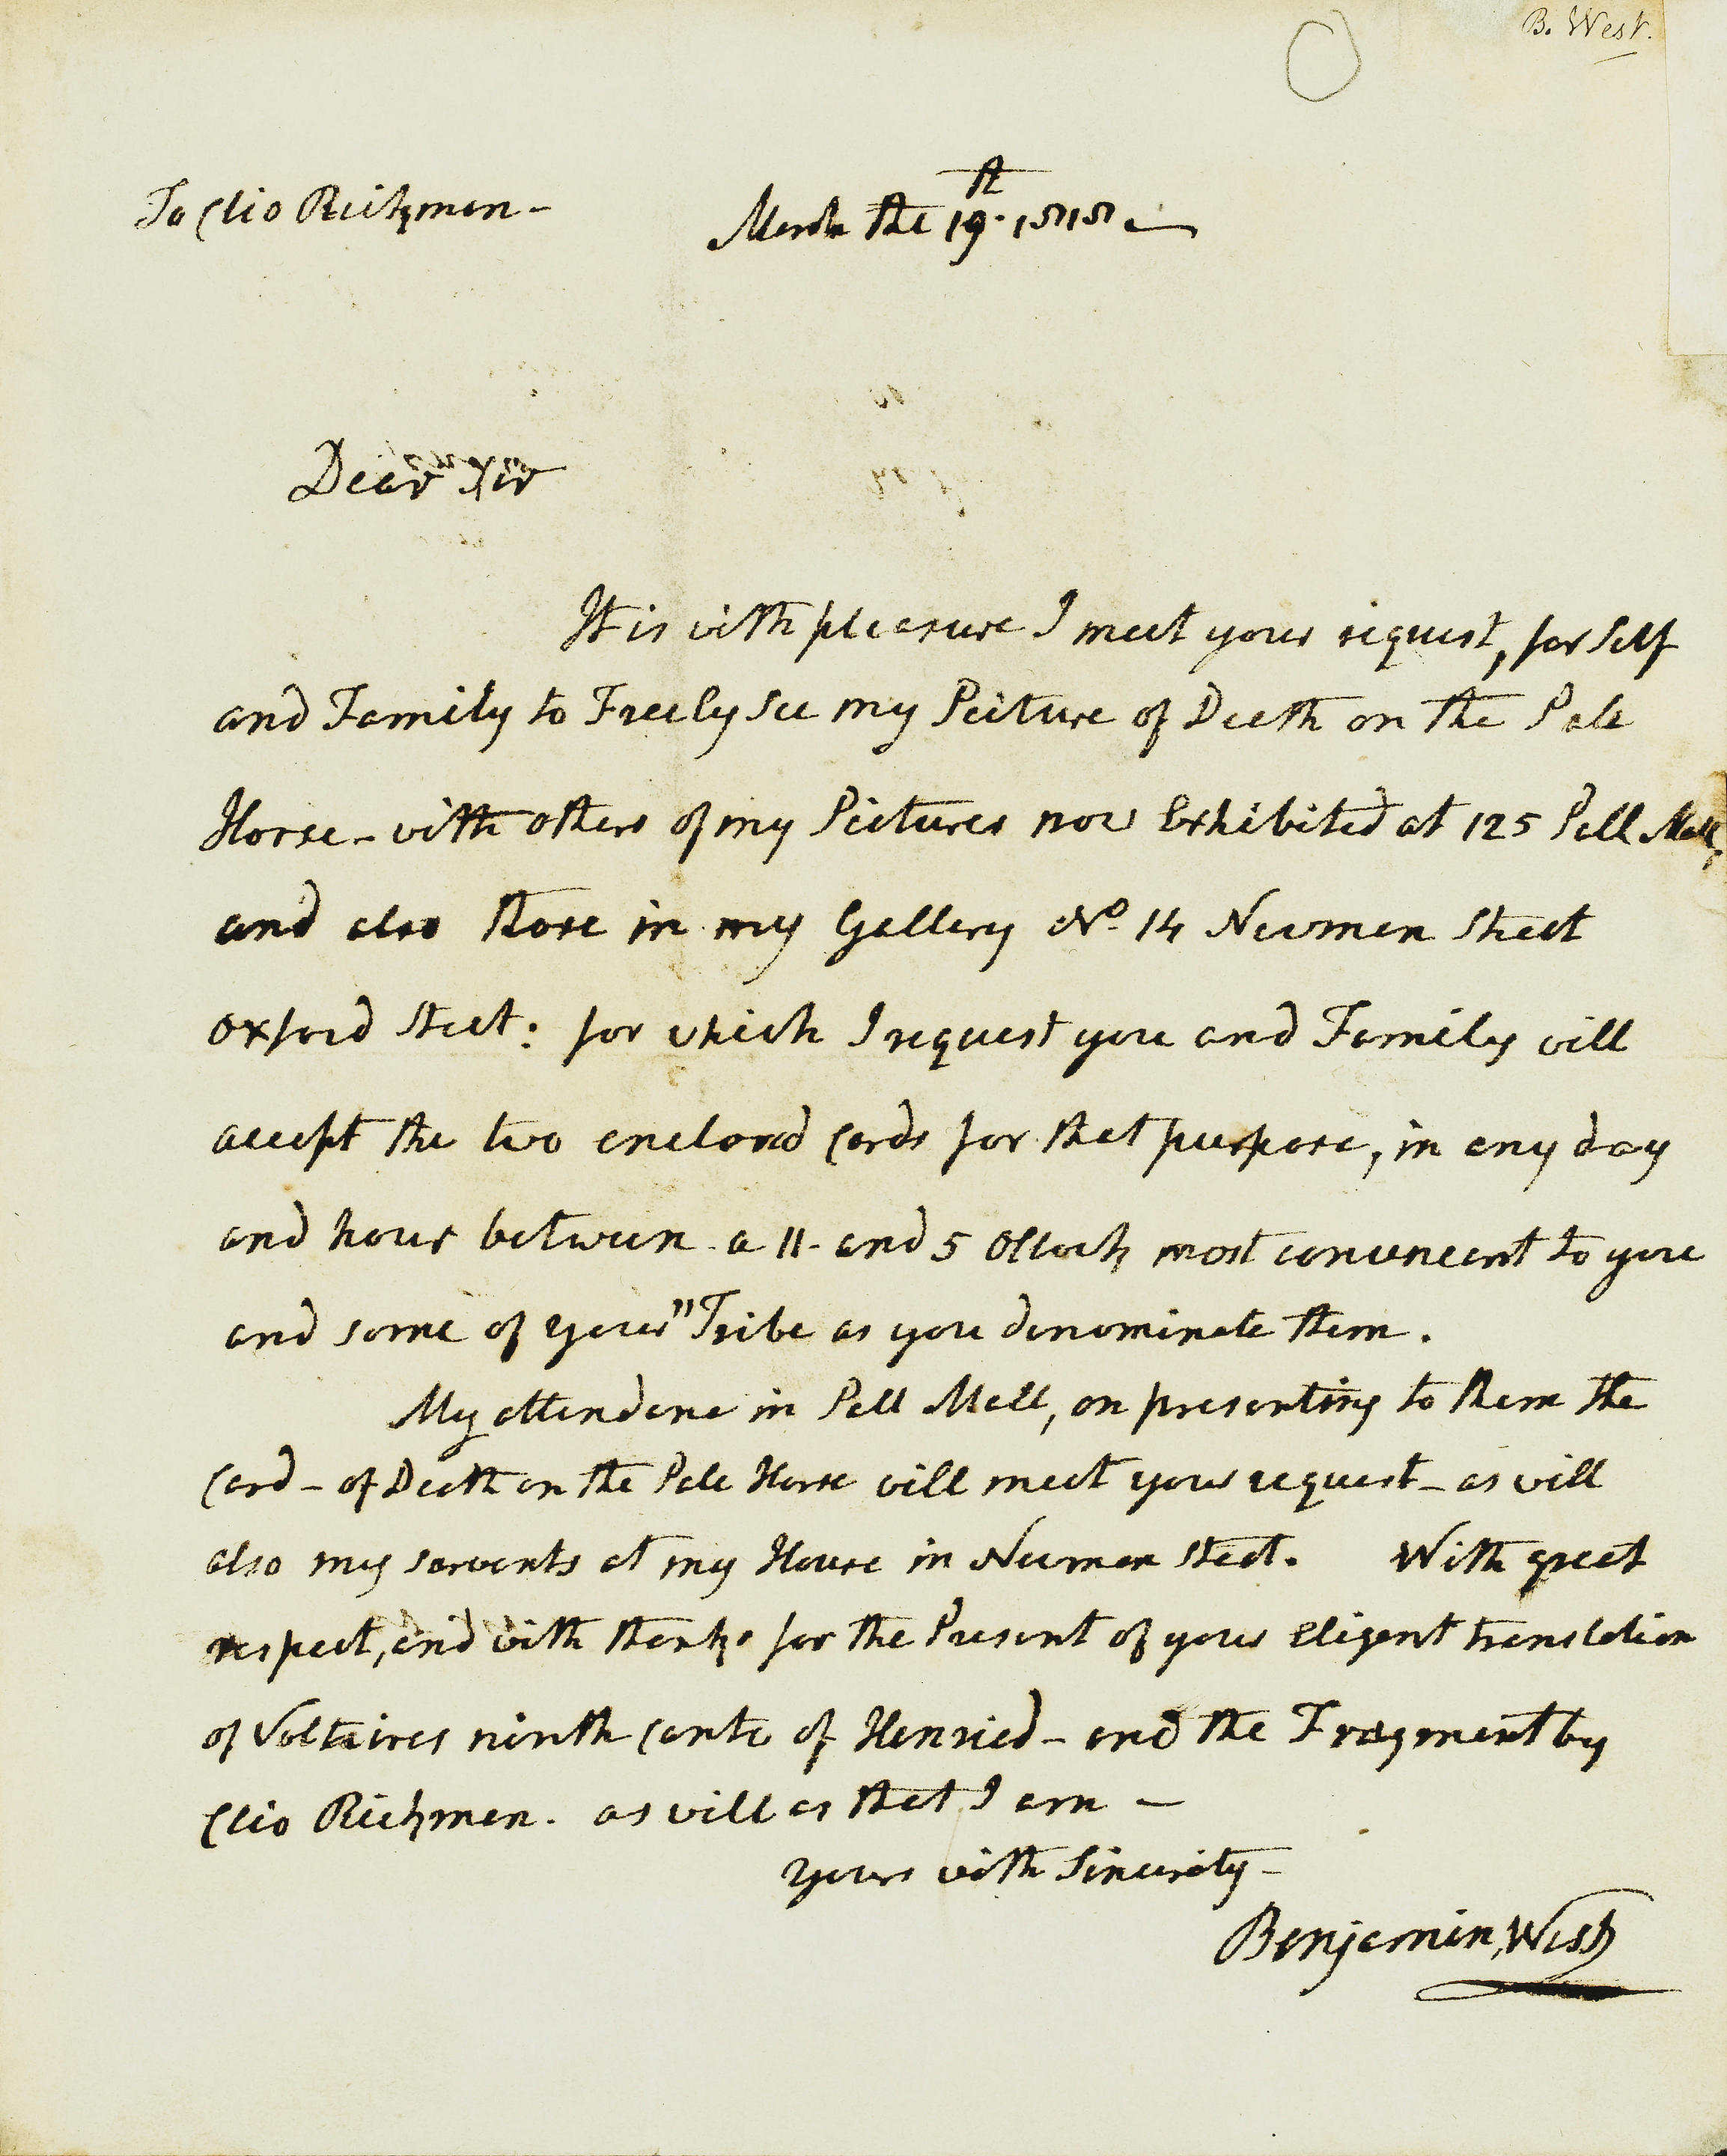 B. West.
To Clio Rickman-
March the 19th. 1818.
Dear Sir
It is with pleasure I meet your request, for Self
and Family to Freely See my Picture of Death on the Pale
Horse - with others of my Pictures now Exhibited at 125 Pall Mall,
and also those in my Gallery No. 14 Newman Street
Oxford Street: for which I request you and Family will
accept the two enclosed Cards for that purpose, in any day
and hour between a 11 - and 5 OClock most conveneent to you
and some of your "Tribe as you denominate them.
My attendane in Pall Mall, on presenting to them the
Card - of Death on the Pale Horse will meet your request - as will
also my servents at my House in Newman Street. With great
respect, and with thanks for the Present of your Eligent translation
of Voltaires ninth Canto of Henried - and the Fragment by
Clio Rickman. as will as that I am -
Yours with Sincerity -
Benjamin West